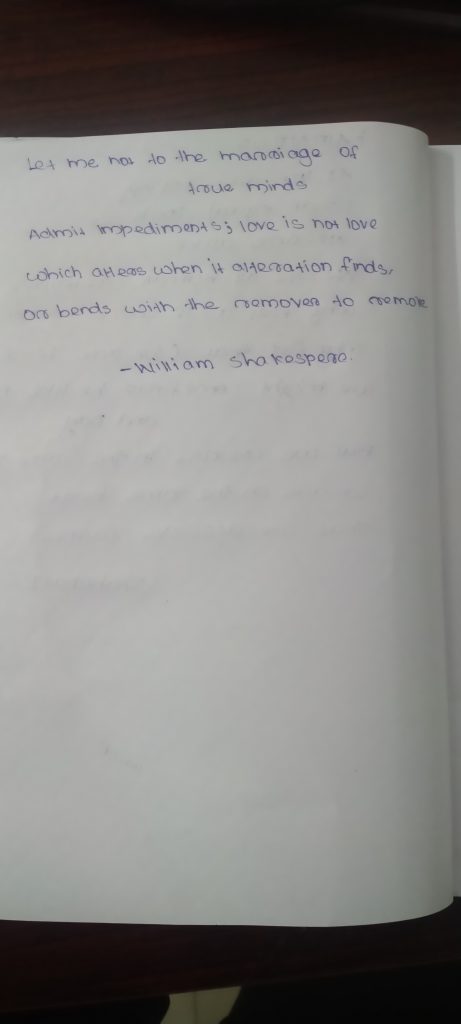 Let me not to the marriage of
true minds
Admit impediments; love is not love
which alters when it alteration finds,
or bends with the remover to remove
-William Shakespere.